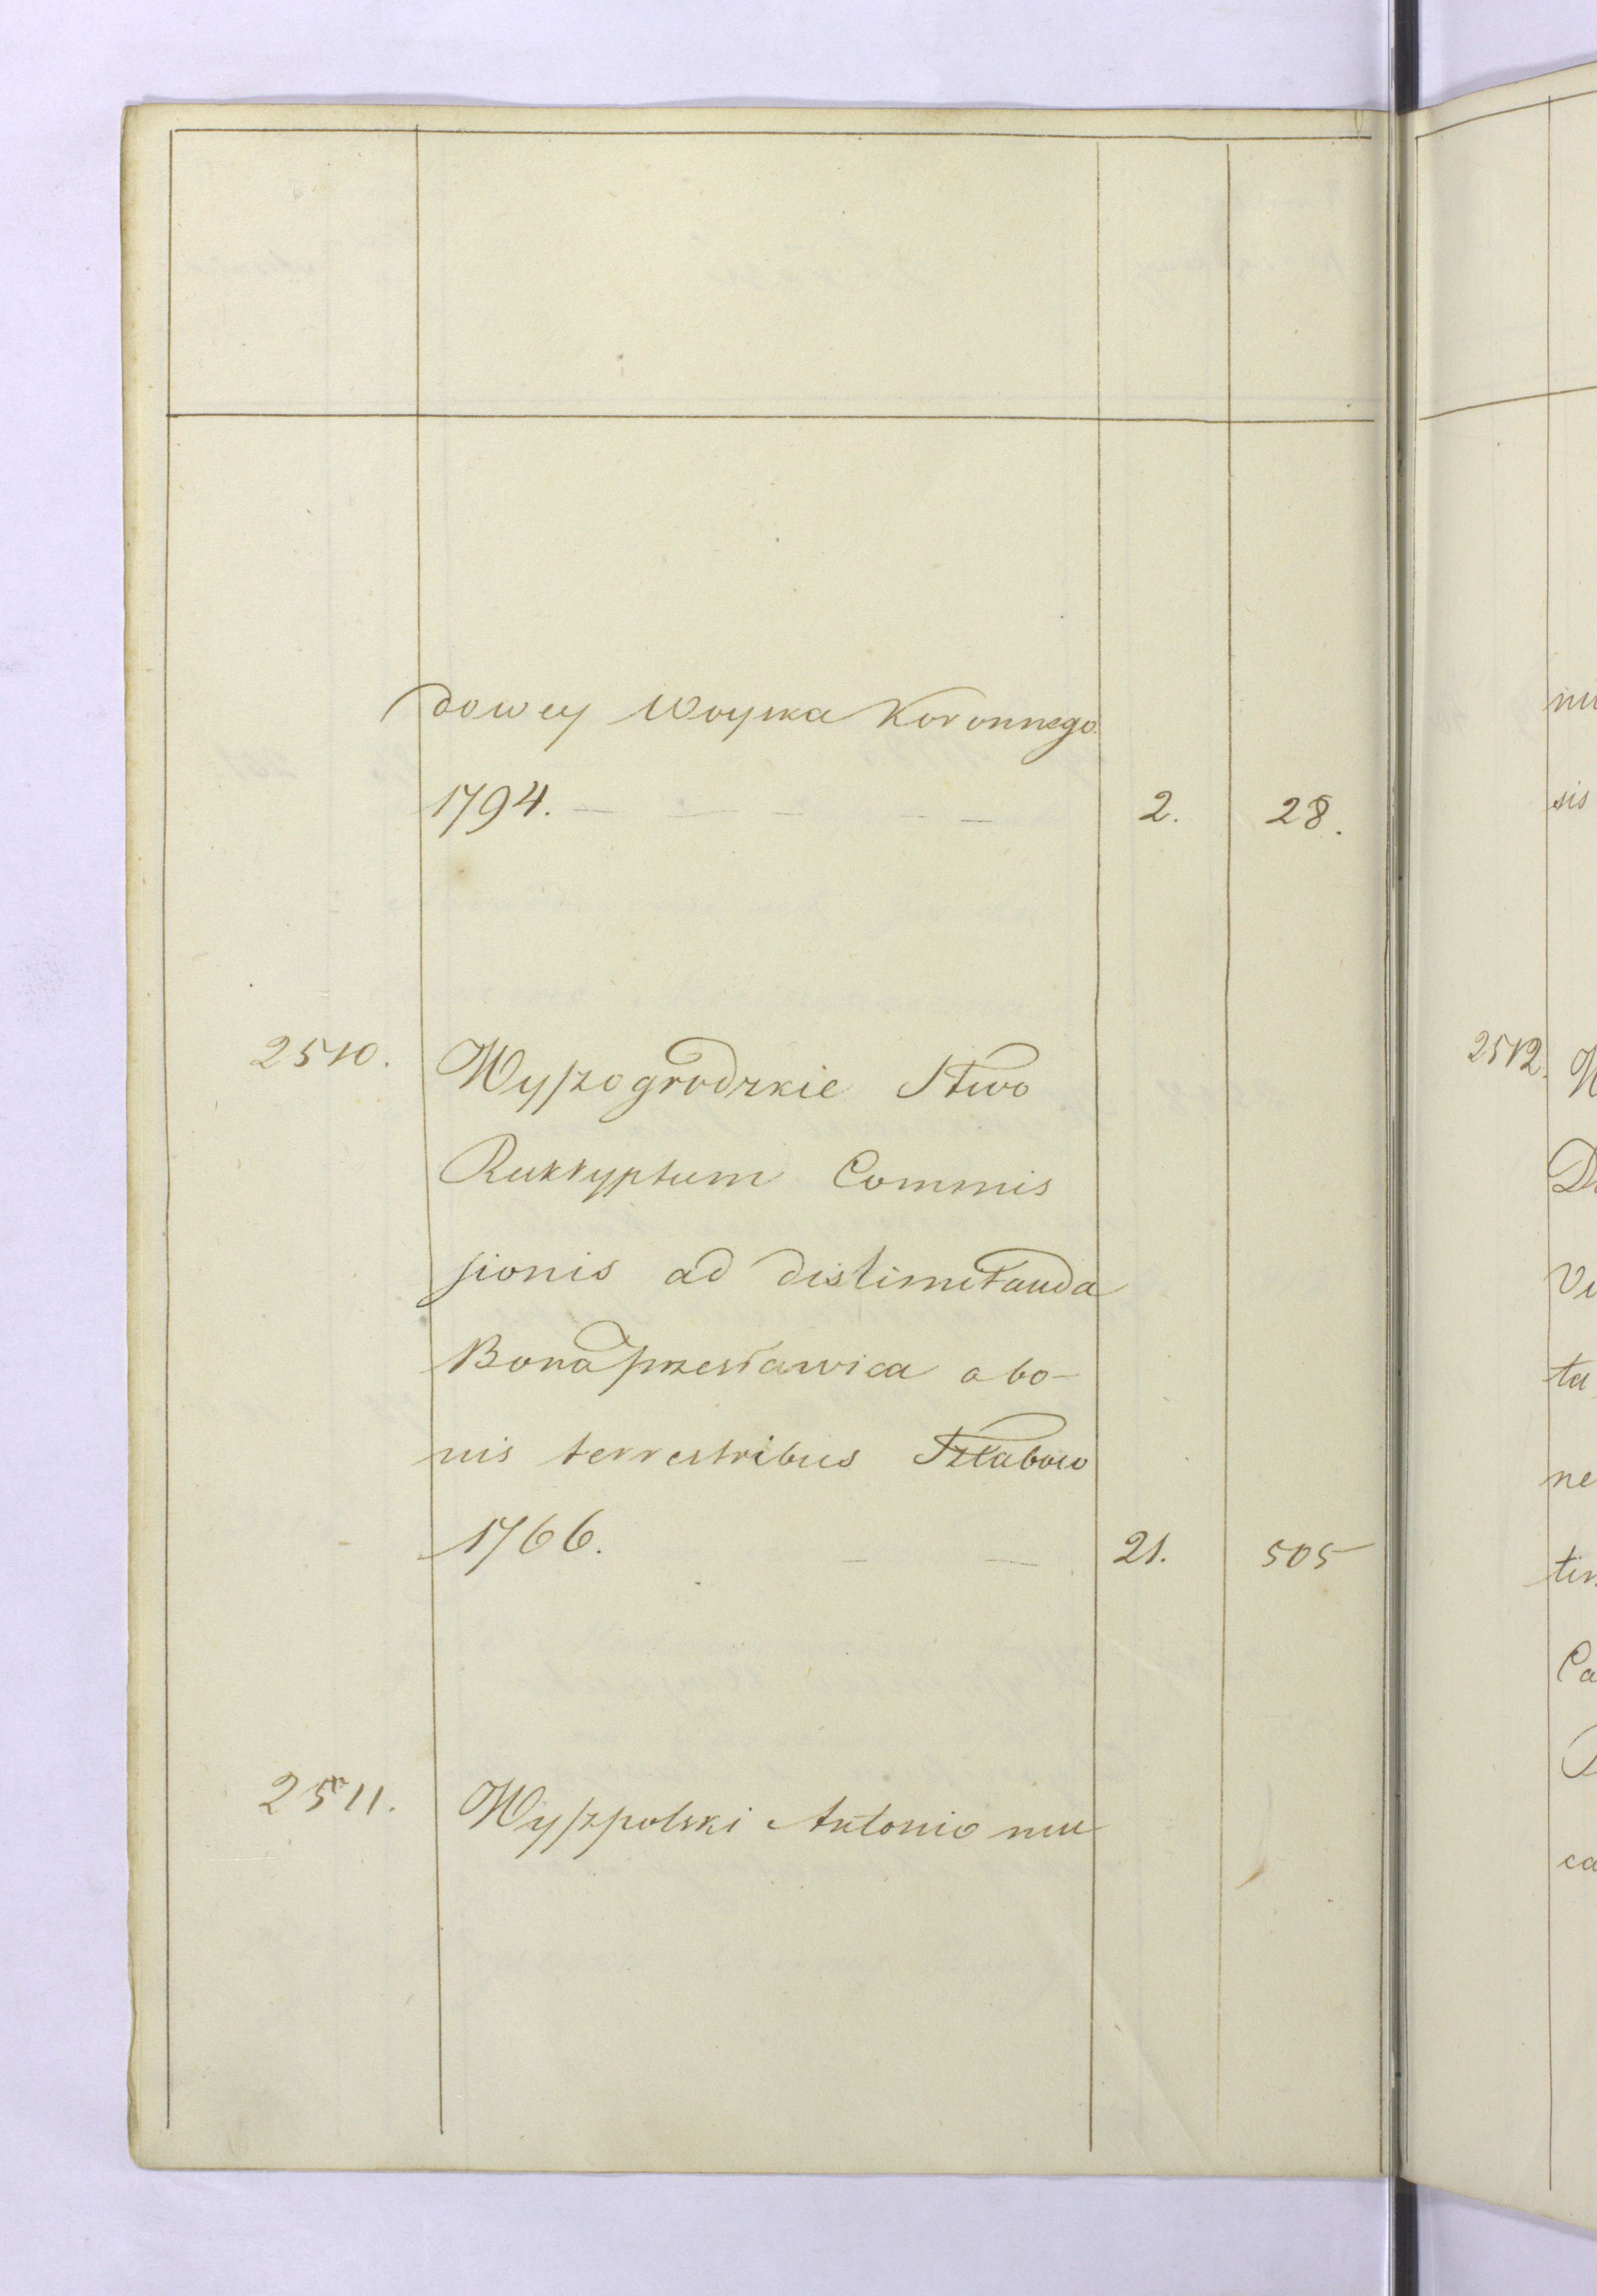 dowey Woyska Koronnego.
1794. — — — — — 2. 28.
2510. Wyszogrodzkie Stwo
Reskryptum Commis
sionis ad dislimitanda
Bona Przesławica a bo-
nis terrestribus Szłabowo
1766. — — 21. 505
2511. Wyszpolski Antonio nu
2512.